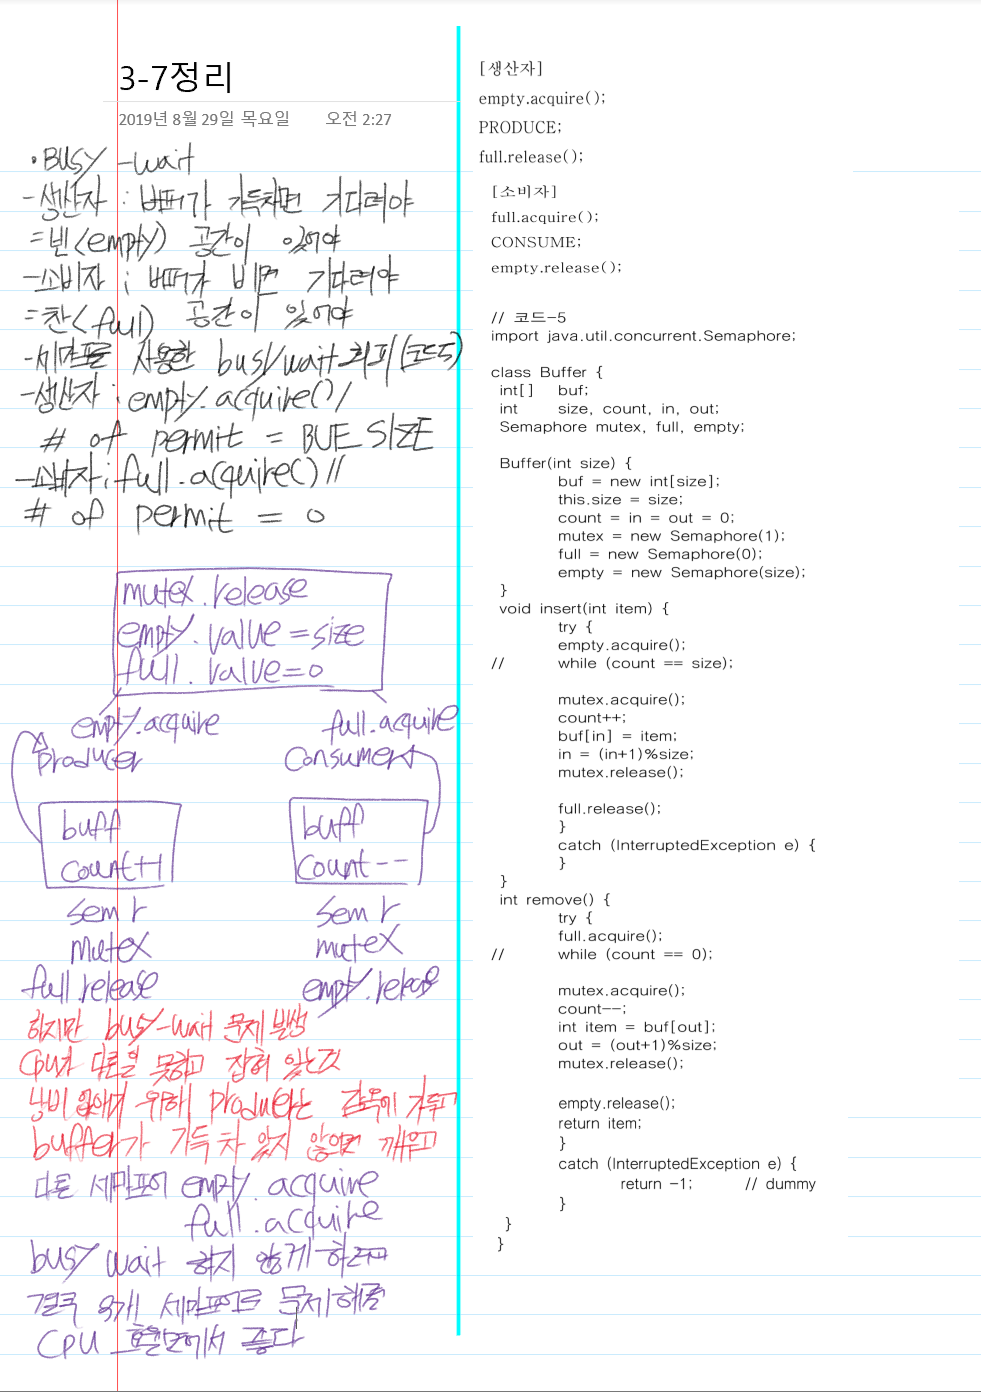 3-7정리
2019년 8월 29일 목요일 오전 2:27
• BUSY -wait
- 생산자 : 버퍼가 가득차면 기다려야
= 빈(empty) 공간이 있어야
- 소비자 ; 버퍼가 비면 기다려야
= 찬(full) 공간이 있어야
- 세마포를 사용한 busy wait 회피(코드5)
- 생산자 : empty.acquire()/
# of permit = BUF SIZE
- 소비자 ; full.acquire()//
# of permit = 0
mutex.release
empty.value = size
full.value=0
empty.acquire full.acquire
producer Consumer
buff buff
count++ count--
sem r sem r
mutex mutex
full.release empty.release
하지만 busy-wait 문제 발생
CPU가 다른일 못하고 잡혀 있는것
낭비 없애기 위해 producer는 감옥에 가두고
buffer가 가득 차 있지 않으면 깨우고
다른 세마포어 empty.acquire
full.acquire
busy wait 하지 않게 하고
결국 3개 세마포어로 문제 해결
CPU 효율면에서 좋다
[생산자]
empty.acquire();
PRODUCE;
full.release();
[소비자]
full.acquire();
CONSUME;
empty.release();
// 코드-5
import java.util.concurrent.Semaphore;
class Buffer {
int[] buf;
int size, count, in, out;
Semaphore mutex, full, empty;
Buffer(int size) {
buf = new int[size];
this.size = size;
count = in = out = 0;
mutex = new Semaphore(1);
full = new Semaphore(0);
empty = new Semaphore(size);
}
void insert(int item) {
try {
empty.acquire();
// while (count == size);
mutex.acquire();
count++;
buf[in] = item;
in = (in+1)%size;
mutex.release();
full.release();
}
catch (InterruptedException e) {
}
}
int remove() {
try {
full.acquire();
// while (count == 0);
mutex.acquire();
count--;
int item = buf[out];
out = (out+1)%size;
mutex.release();
empty.release();
return item;
}
catch (InterruptedException e) {
return -1; // dummy
}
}
}